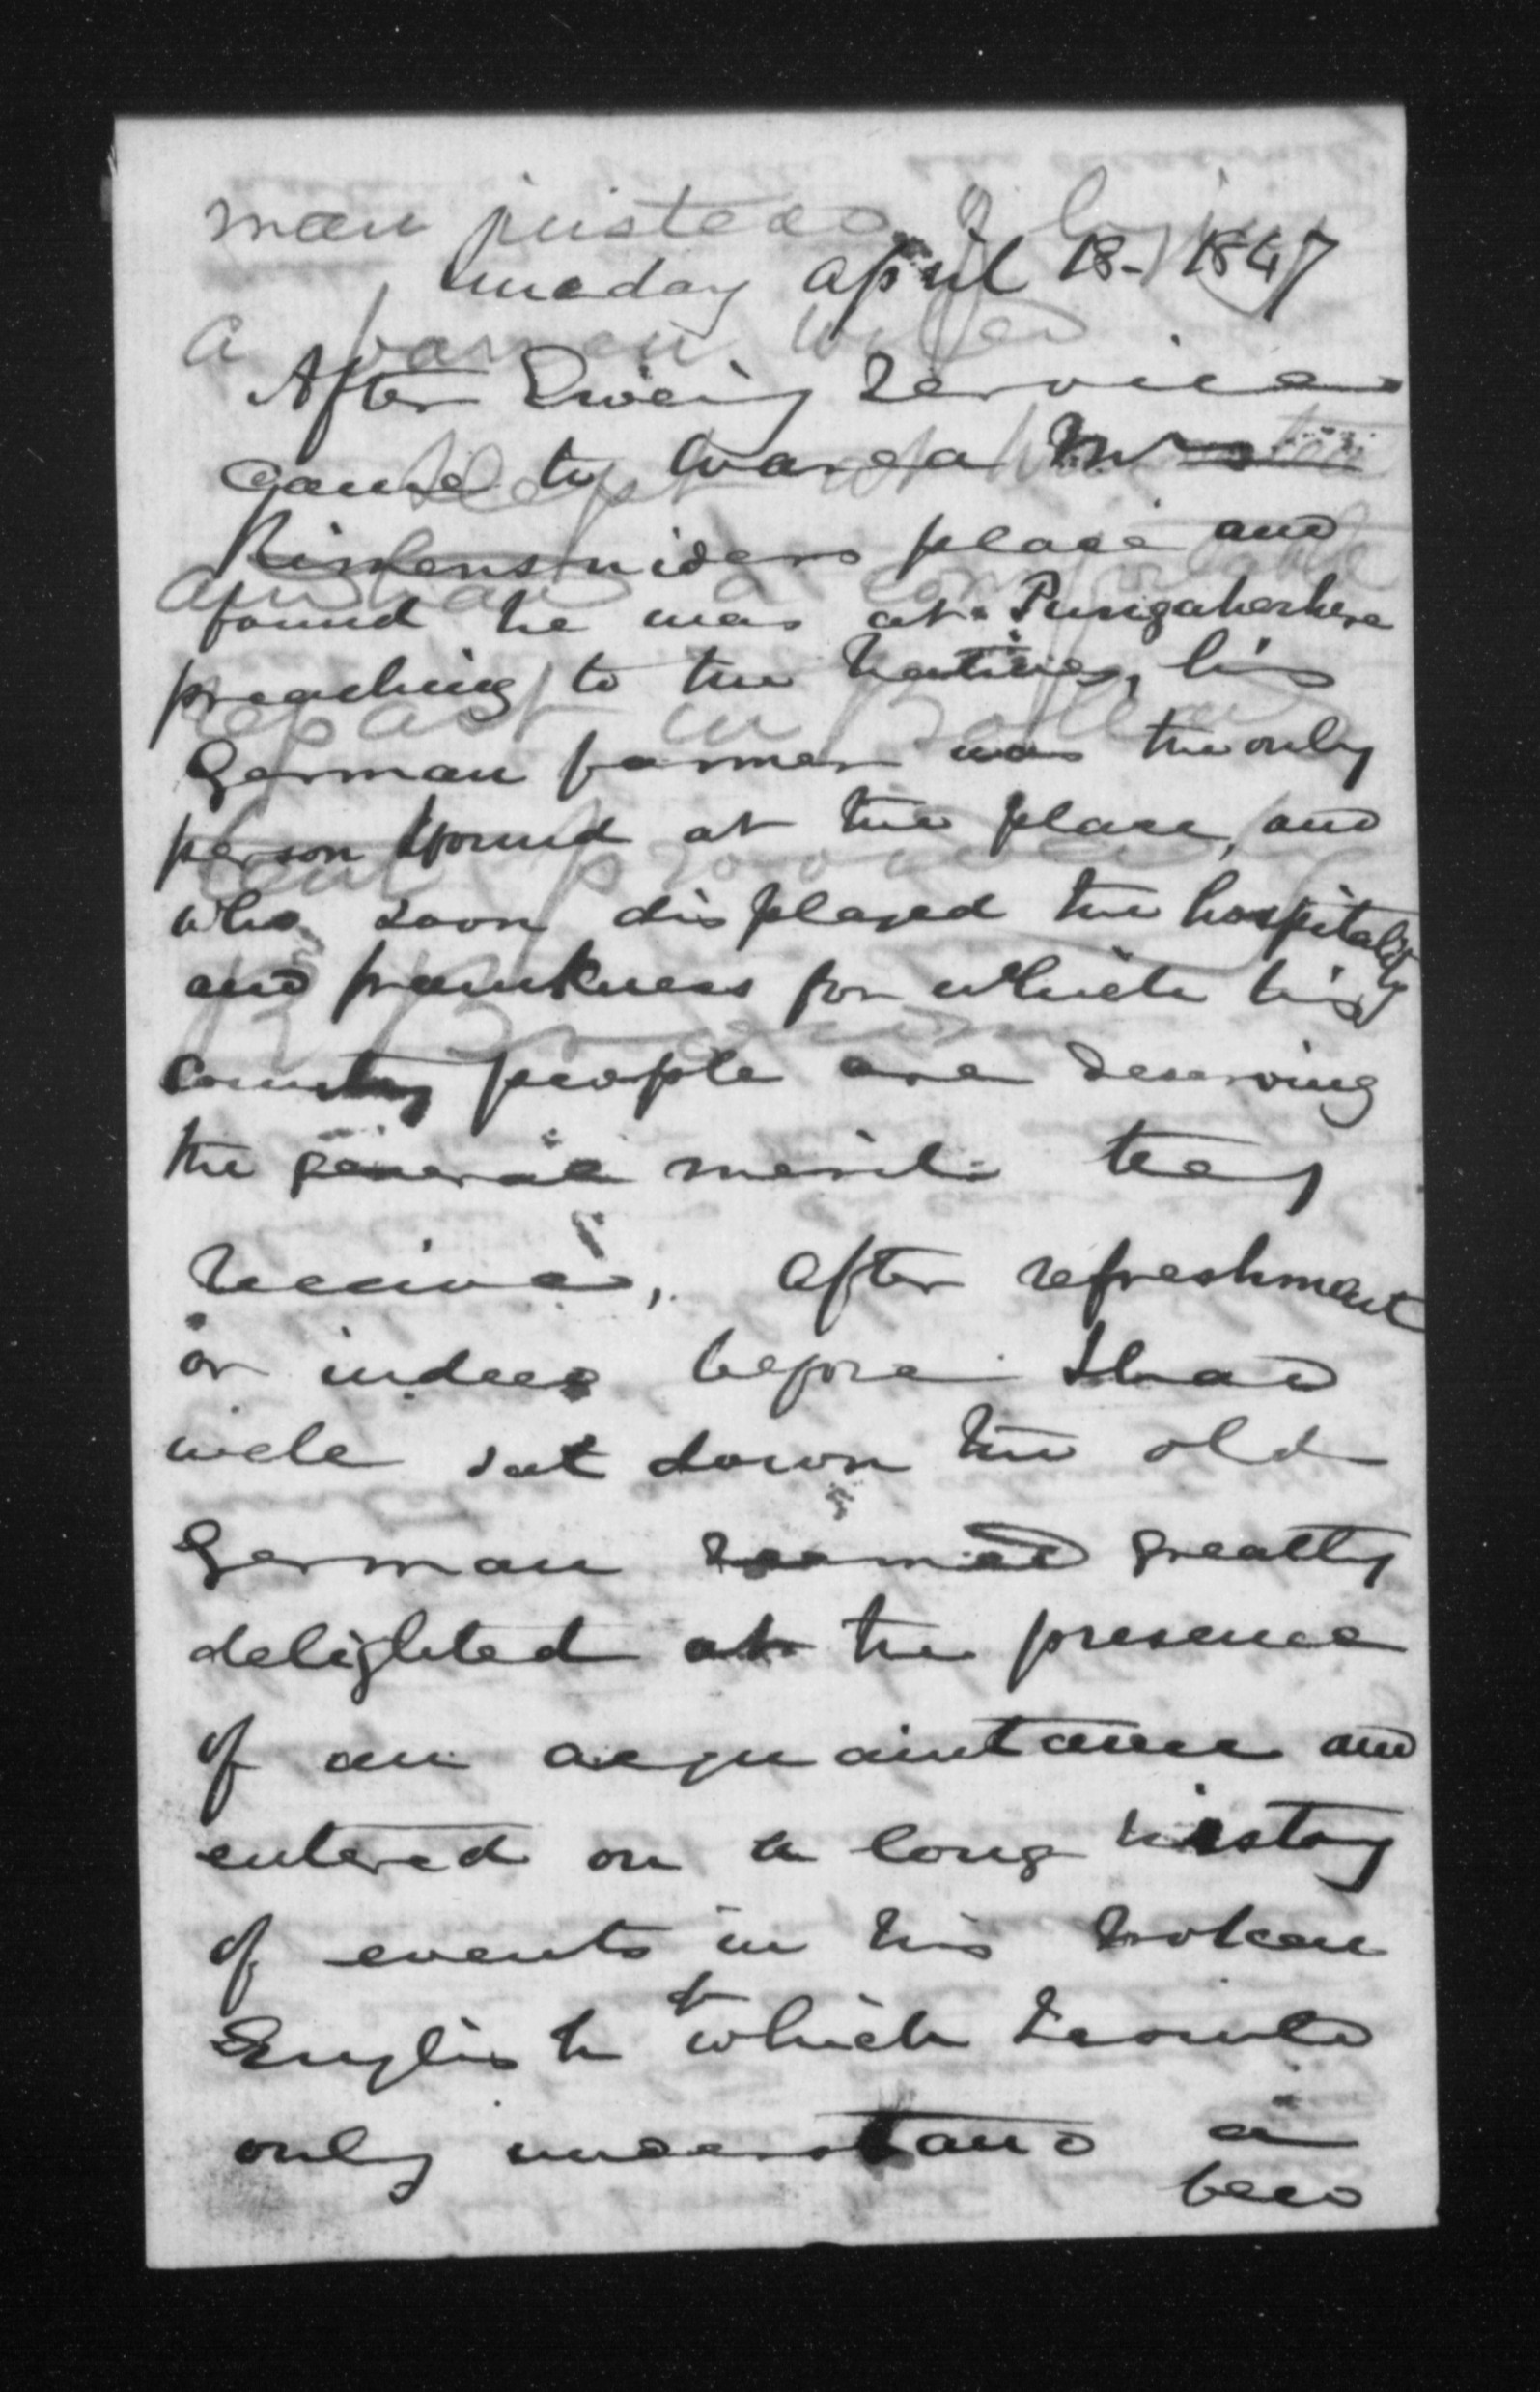 man instead of
Sunday April 18 - 1847
a barren wild
After Divine Service
Came to Warea Mr
Rimenschniders place and
found he was at Pungaherhere
preaching to the natives, his
repast in
German farmer was the only
person I found at the place, and
who soon displayed the hospitality
and frankness for which his
country people are deserving
the general merit they
receive, After refreshment
or indeed before I had
well sat down the old
German seemed greatly
delighted at the presence
of an acquaintance and
entered on a long history
of events in his broken
English of which I could
only understand a